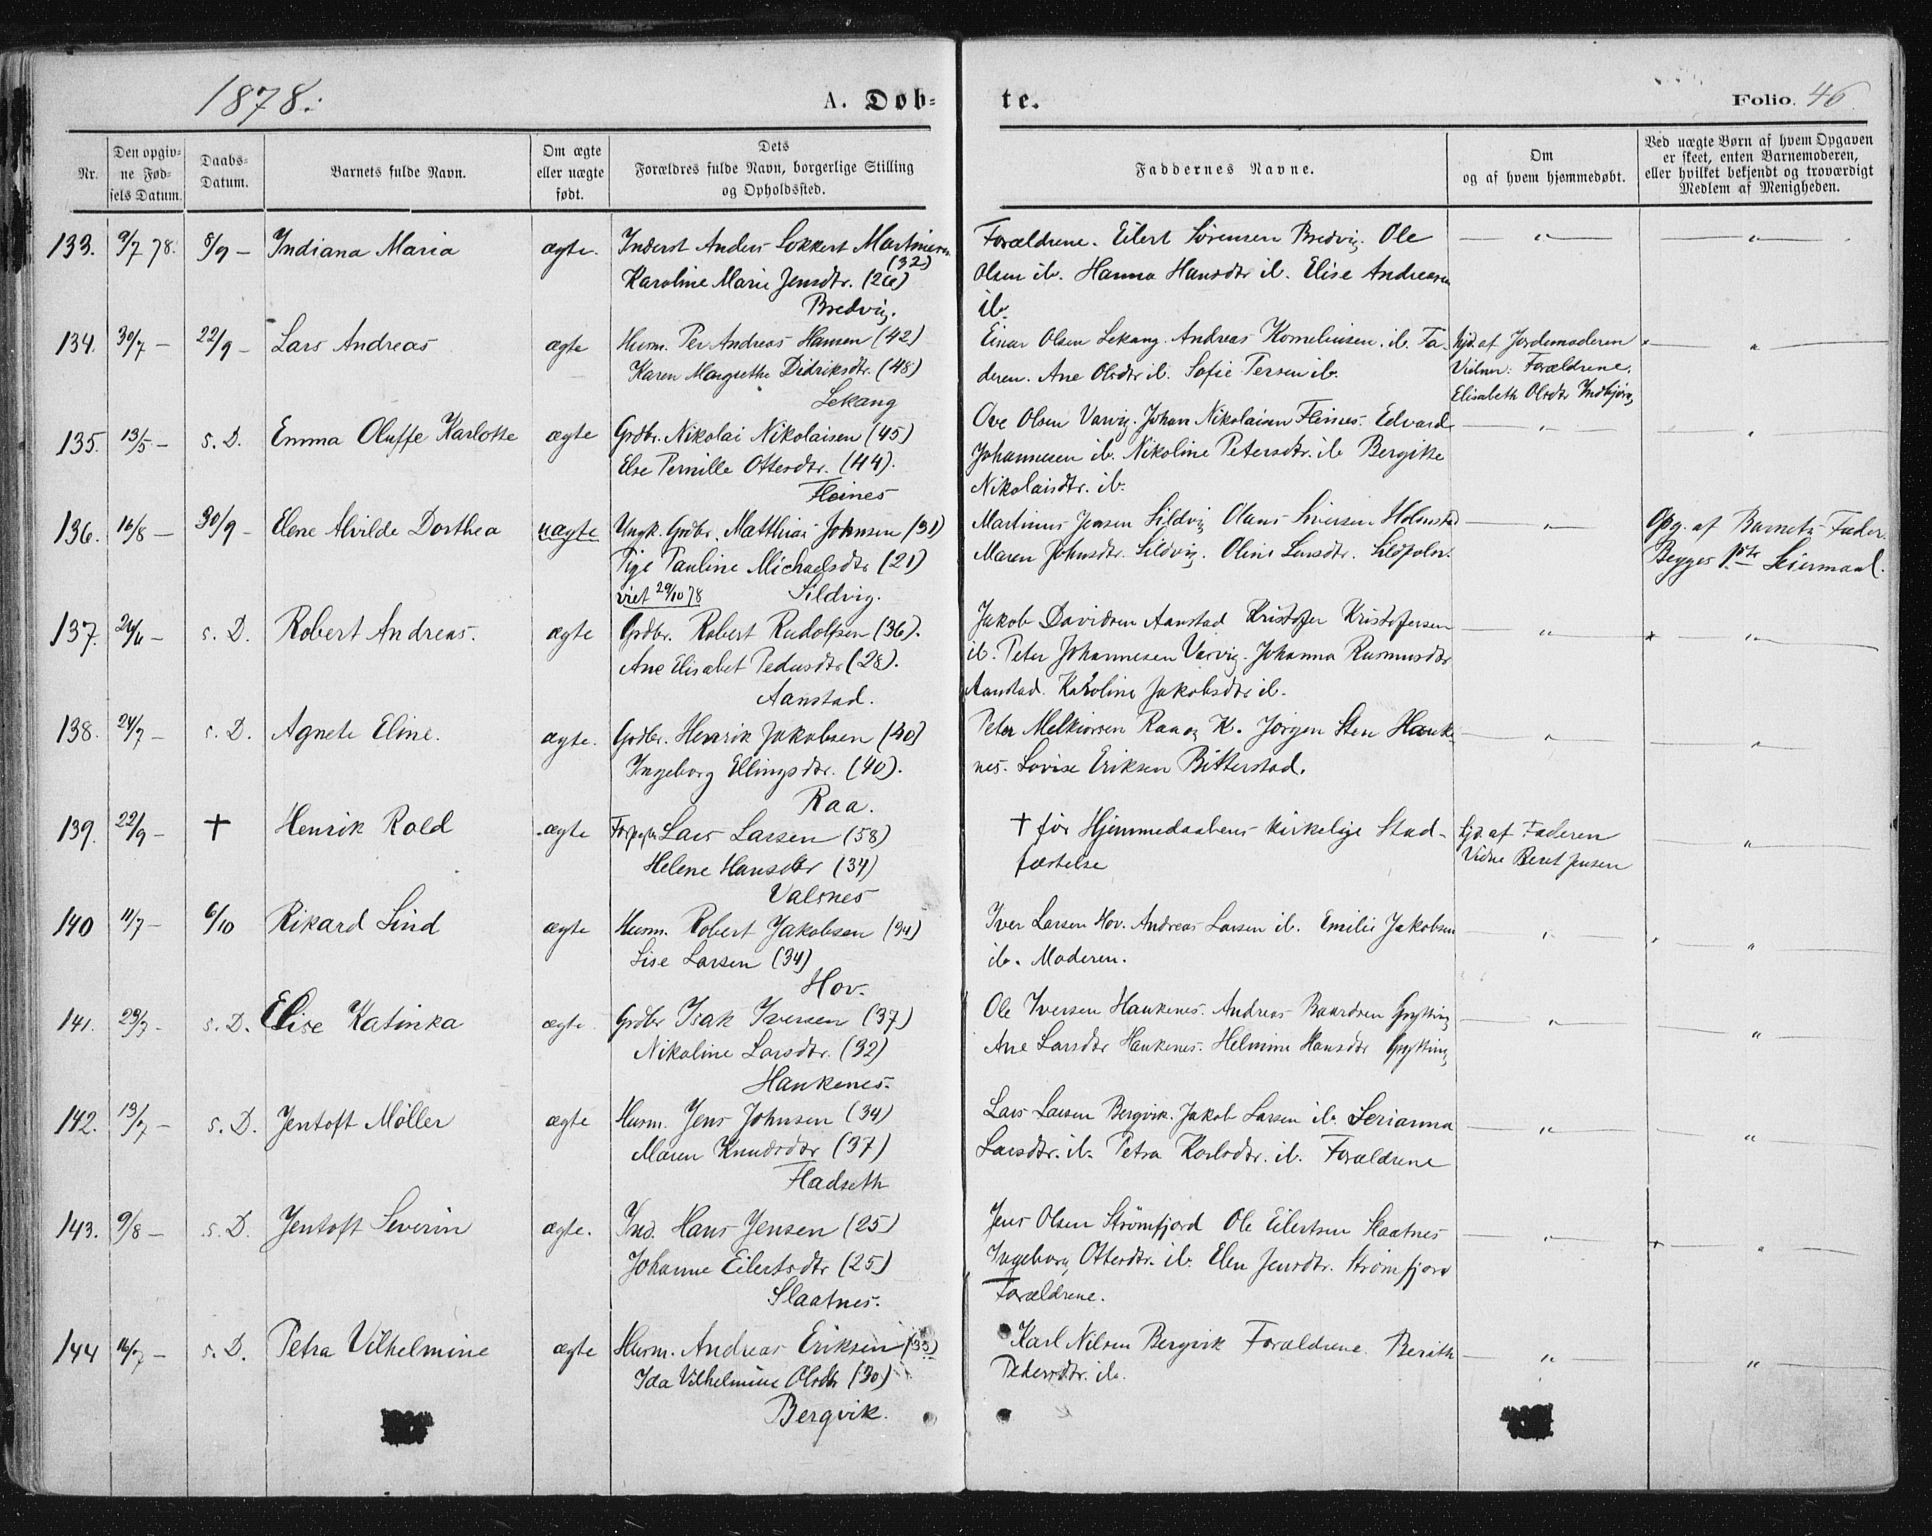 1878.
A. Døb-
te.
Folio. 46.
Nr.
Den opgiv-
ne Fød-
sels Datum.
Daabs-
Datum.
Barnets fulde Navn.
Om ægte
eller uægte
født.
Dets
Forældres fulde Navn, borgerlige Stilling
og Opholdssted.
Faddernes Navne.
Om
og af hvem hjemmedøbt.
Ved uægte Børn af hvem Opgaven
er skeet, enten Barnemoderen,
eller hvilket bekjendt og troværdigt
Medlem af Menigheden.
133. 9/7 78. 8/9 – Indiana Maria ægte. Inderst Anders Lokkert Martinsen
(32)
Karoline Marie Jensdtr. (26)
Bredvig.
Forældrene. Eilert Sørensen Bredvig. Ole
Olsen ib. Hanna Hansdtr ib. Elise Andreasen
ib.
— " — — " —
134. 30/7 – 22/9 – Lars Andreas ægte Husm. Per Andreas Hansen (42)
Karen Margrethe Didriksdtr. (48)
Lekang
Einar Olsen Lekang. Andreas Korneliusen. ib. Fa-
deren. Ane Olsdtr ib. Sofie Persen ib.
hjd. af Jordemoderen
Vidner: Forældrene.
Elisabeth Olsdtr
— " —
135. 13/5 – s. D. Emma Oluffe Karlotte ægte Grdbr. Nikolai Nikolaisen (45)
Else Pernille Ottersdtr. (44).
Fleines
Ove Olsen Varvig. Johan Nikolaisen Fleines. Edvard
Johannesen ib. Nikoline Petersdtr. ib Bergitte
Nikolaisdtr. ib.
— " — — " —
136. 16/8 – 30/9 – Elene Alvilde Dorthea uægte Ungk. Grdbr. Matthias Johnsen (31)
Pige Pauline Michaelsdtr (21)
viet 29/10 78 Sildvig.
Martinus Jensen Sildvig Olaus Siversen Holmstad
Maren Johnsdtr. Sildvig. Oline Larsdtr. Sildpoln.
— " —
Opg. af Barnets Fader.
Begges 1ste Leiermaal.
137. 24/6 – s. D. Robert Andreas. ægte Grdbr. Robert Rudolfsen (36).
Ane Elisabet Pedersdtr (28).
Aanstad.
Jakob Davidsen Aanstad Kristofer Kristofersen
ib. Peter Johannesen Varvig. Johanna Rasmusdtr
Aanstad. Karoline Jakobsdtr ib.
— " — — " —
138. 24/7 – s. D. Agnete Eline. ægte. Grdbr. Henrik Jakobsen (40)
Ingeborg Ellingsdtr. (40).
Raa.
Peter Melkiorsen Raa og K. Jørgen Sten Hauk-
nes. Lovise Eriksen Bitterstad.
— " — — " —
139. 22/9 – † Henrik Rold ægte Forpagter Lars Larsen (58)
Helene Hansdtr (34)
Valsnes
† før Hjemmedaabens kirkelige Stad-
fæstelse
hjd. af Faderen
Vidne Beret Jensen
— " —
140 11/7 – 6/10 Rikard Lind ægte Husm. Robert Jakobsen (34)
Lise Larsen (34)
Hov.
Iver Larsen Hov. Andreas Larsen ib. Emilie Jakobsen
ib. Moderen.
— " — — " —
141. 29/7 – s. D. Elise Katinka ægte Grdbr Isak Iversen (37)
Nikoline Larsdtr. (32)
Haukenes.
Ole Iversen Haukenes. Andreas Baardsen Grytting
Ane Larsdtr Haukenes. Helmine Hansdtr Grytting
— " — — " —
142. 13/7 – s. D. Jentoft Möller ægte Husm. Jens Johnsen (34)
Maren Knudsdtr (37)
Fladseth
Lars Larsen Bergvik. Jakob Larsen ib. Serianna
Larsdtr. ib. Petra Karlsdtr. ib. Forældrene
— " — — " —
143. 9/8 – s. D. Jentoft Severin ægte. Ind. Hans Jensen (25)
Johanne Eilertsdtr (25)
Slaatnes.
Jens Olsen Strømfjord Ole Eilertsen Slaatnes
Ingeborg Ottersdtr. ib. Elen Jensdtr. Strømfjord
Forældrene.
— " — — " —
144 16/7 – s. D. Petra Vilhelmine ægte Husm. Andreas Eriksen (33)
Ida Vilhelmine Olsdtr (30)
Bergvik.
Karl Nilsen Bergvik Forældrene. Berith
Pedersdtr. ib.
— " — — " —